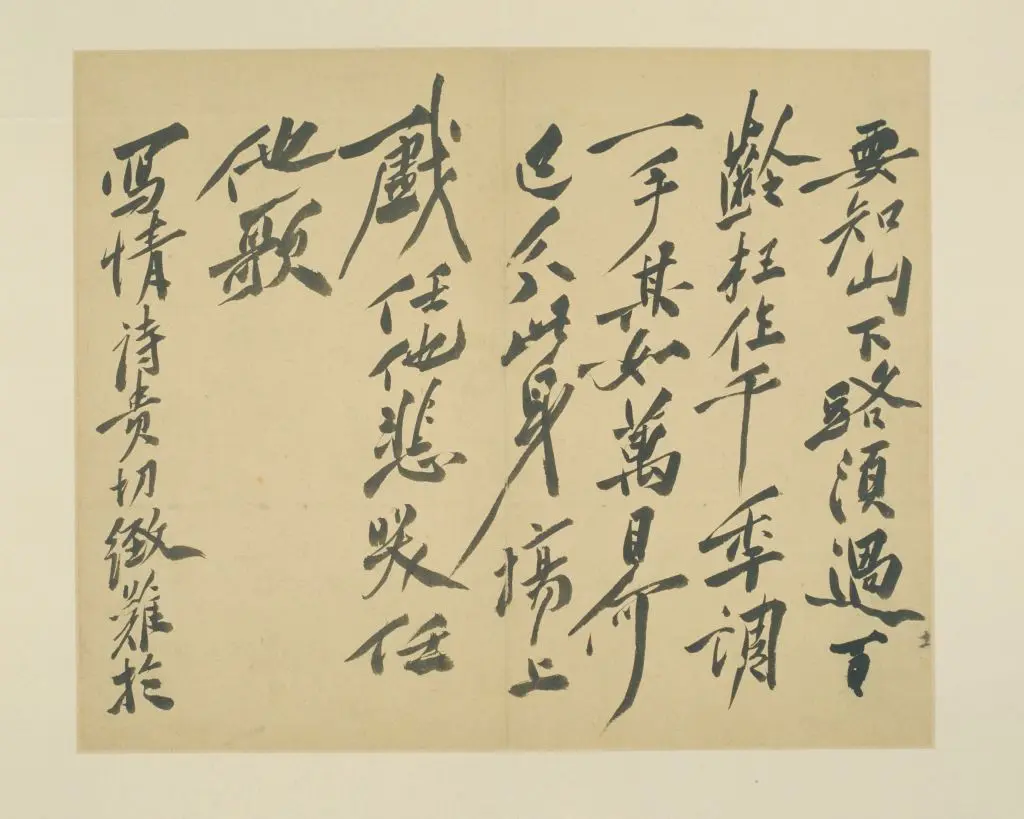 要知山下路須過百
齡枉作千秊調
一手其如萬目何
已分此身場上
戲任他悲咲任
他歌
冩情詩貴切難於